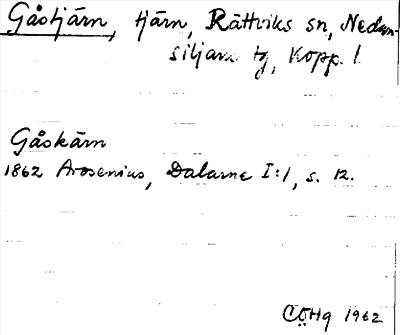 Gåstjärn, tjärn, Rättviks sn, Nedan-
siljans tg, Kopp. l.
Gåskärn
1862 Arosenius, Dalarne I:1, s. 12.
CÖHg 1962